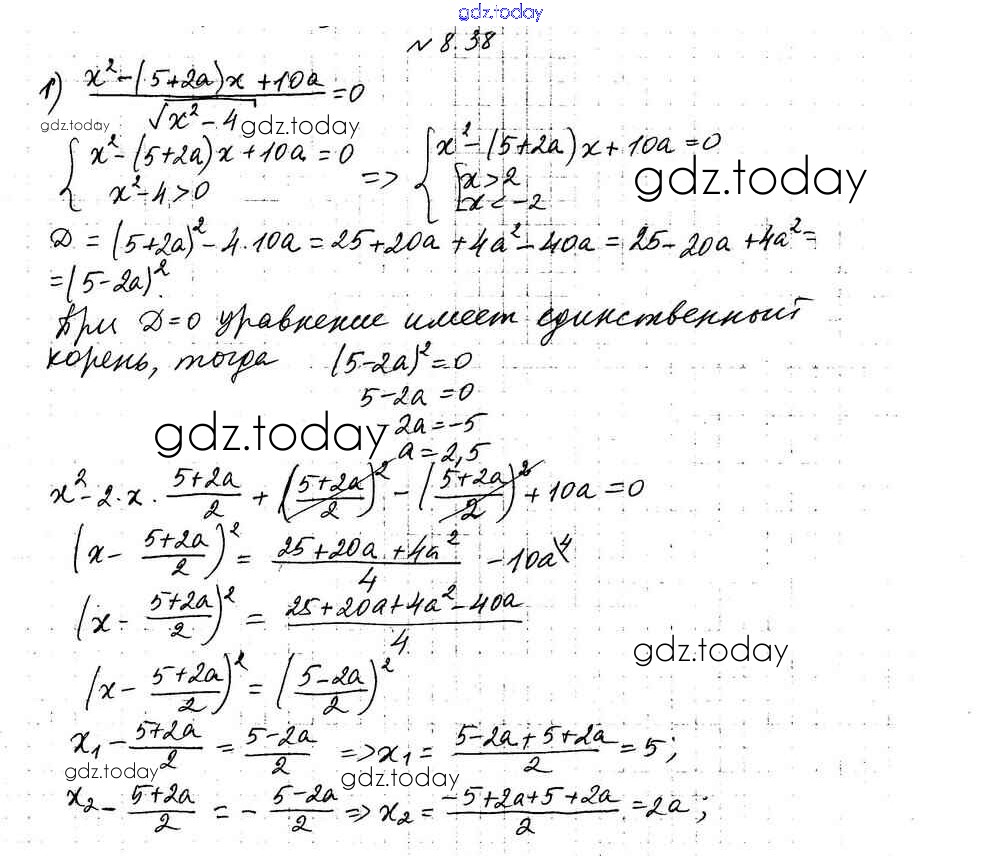 gdz.today
№ 8.38
1) (x² - (5+2a)x + 10a) / √(x² - 4) = 0
gdz.today gdz.today
{ x² - (5+2a)x + 10a = 0 ; x² - 4 > 0 => { x² - (5+2a)x + 10a = 0 ; [ x > 2 ; x < -2
gdz.today
D = (5+2a)² - 4·10a = 25+20a+4a² - 40a = 25 - 20a + 4a² =
= (5-2a)².
При D=0 уравнение имеет единственный
корень, тогда (5-2a)² = 0
5-2a = 0
gdz.today 2a = -5
a = 2,5
x² - 2·x· (5+2a)/2 + ((5+2a)/2)² - ((5+2a)/2)² + 10a = 0
(x - (5+2a)/2)² = (25+20a+4a²)/4 - 10a\4
(x - (5+2a)/2)² = (25+20a+4a²-40a)/4
gdz.today
(x - (5+2a)/2)² = ((5-2a)/2)²
x₁ - (5+2a)/2 = (5-2a)/2 => x₁ = (5-2a+5+2a)/2 = 5;
gdz.today gdz.today
x₂ - (5+2a)/2 = - (5-2a)/2 => x₂ = (-5+2a+5+2a)/2 = 2a;